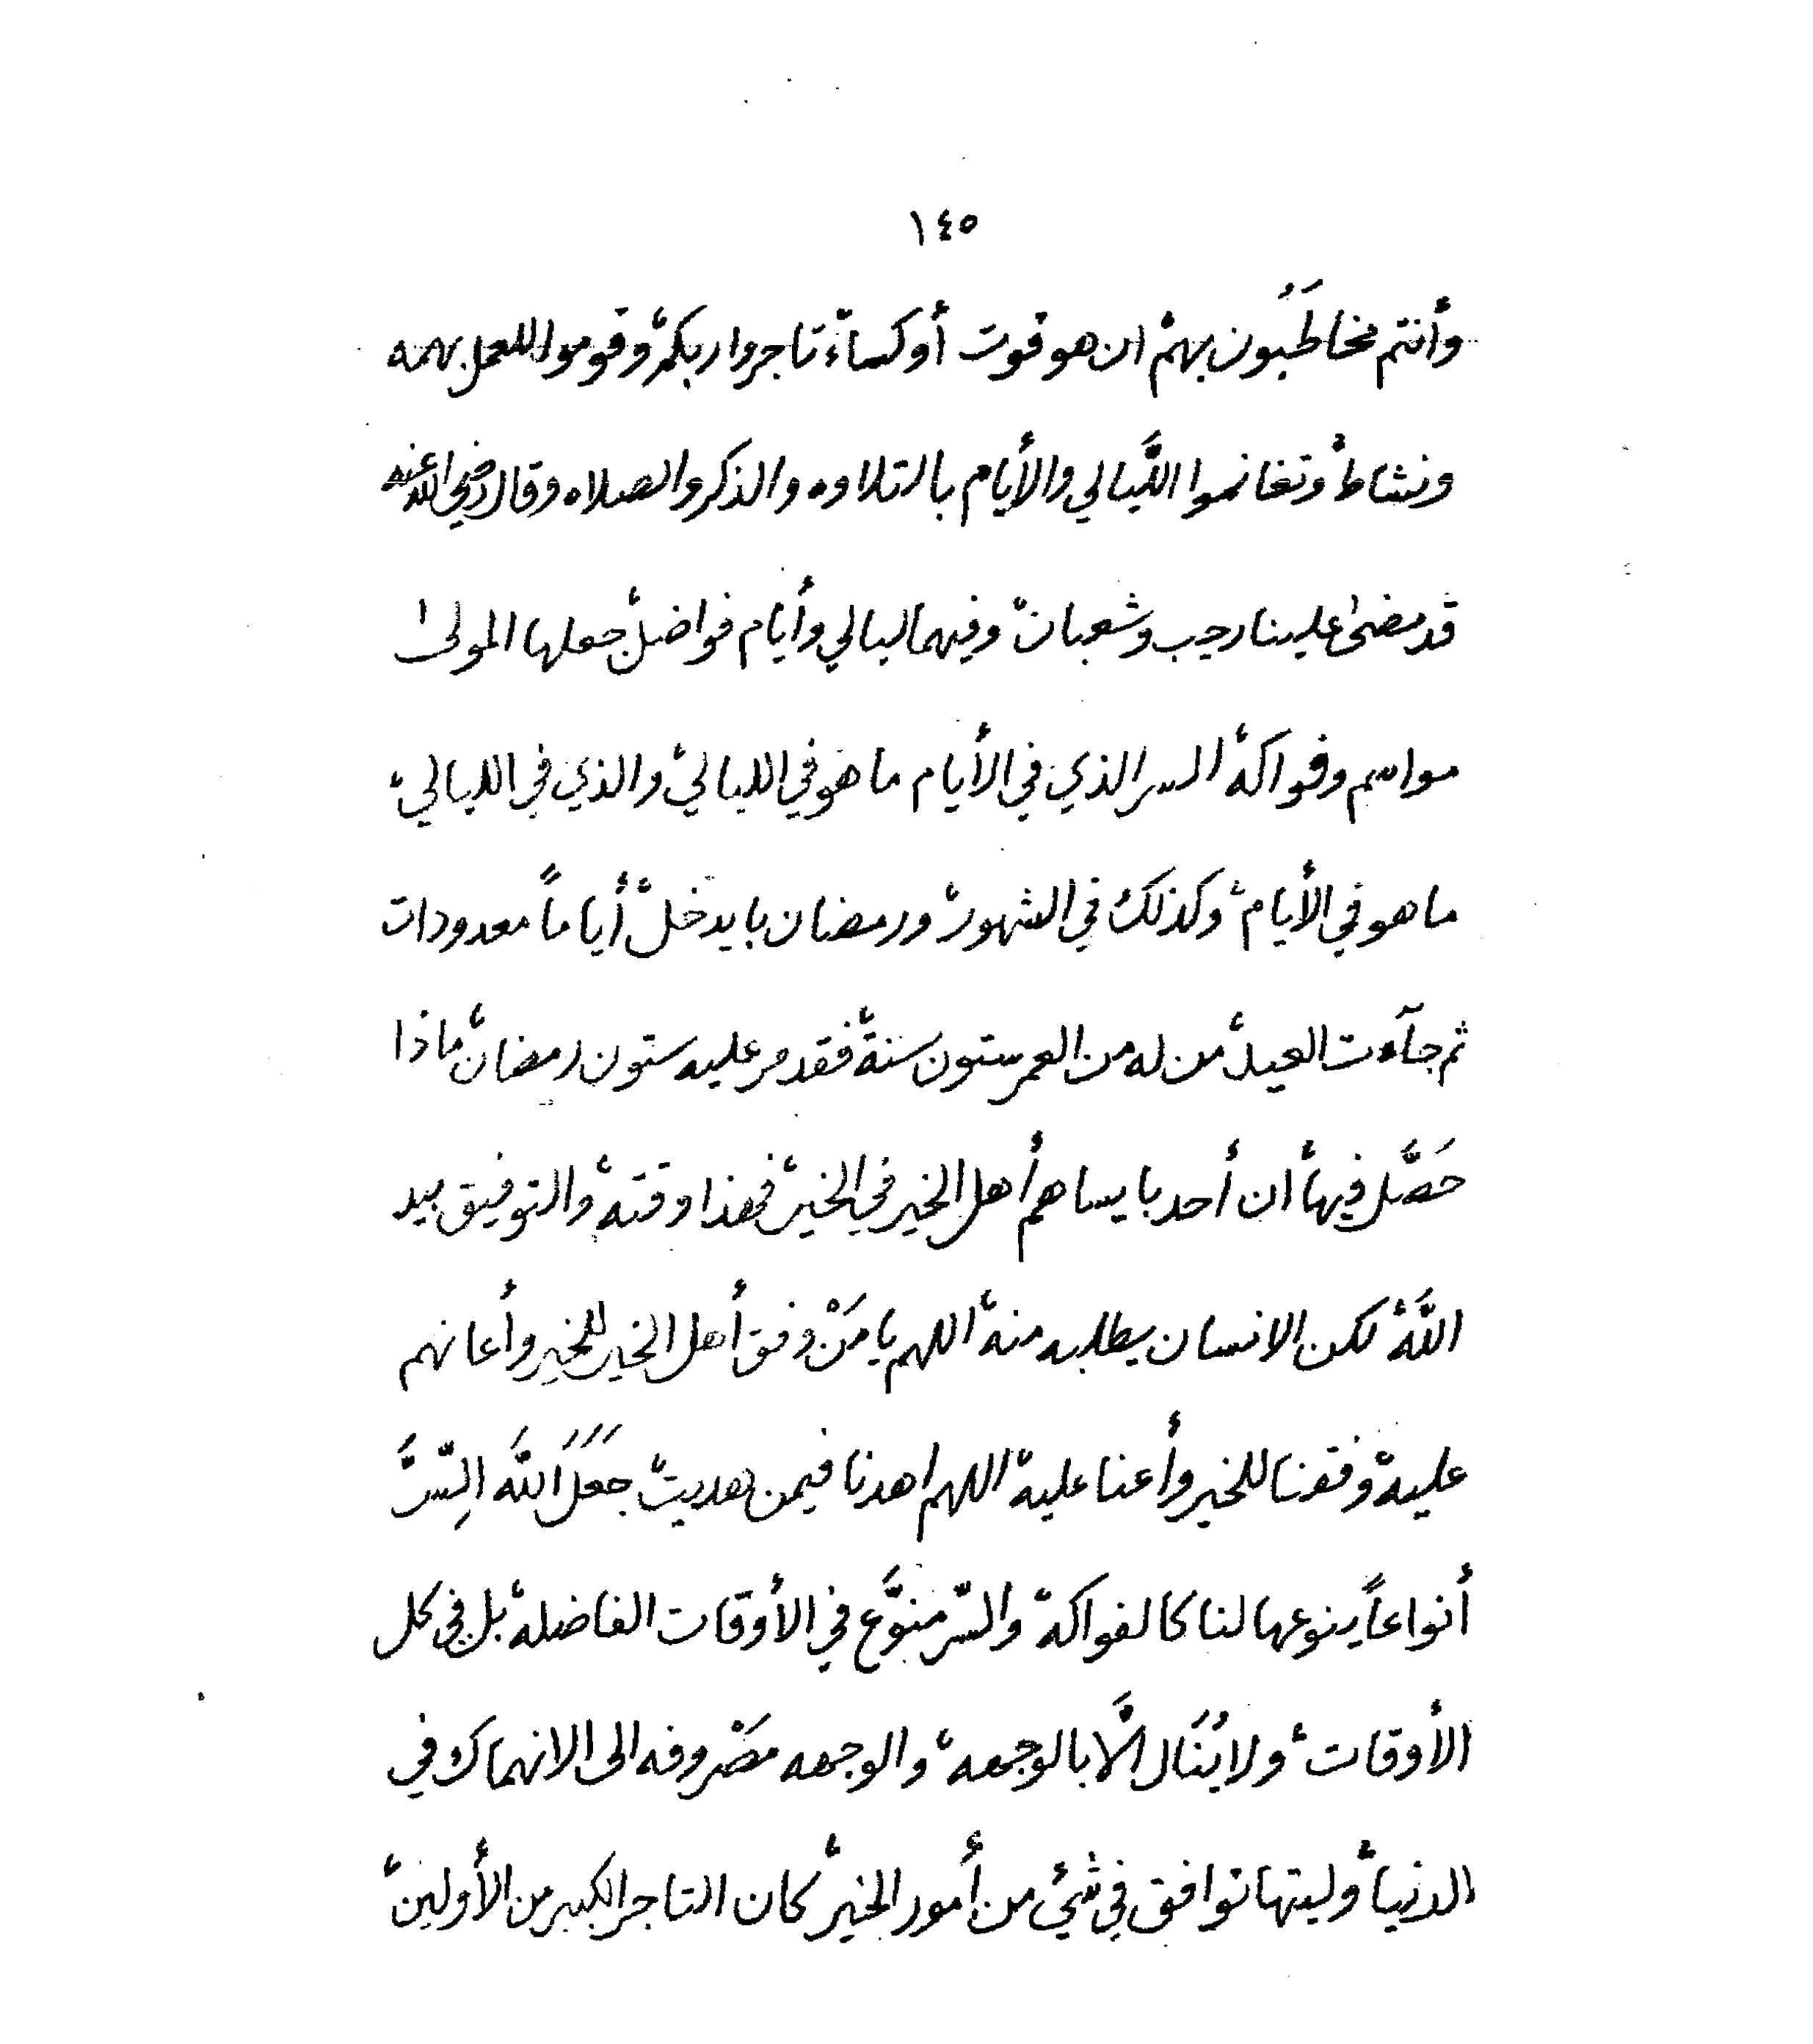 ١٤٥
وأنتم مخاطَبُون بهم، ان هو قوت أو كساء، تاجروا ربكم، وقوموا للعمل بهمه
ونشاط، وتغانموا اللَّيالي والأيام بالتلاوه والذكر والصلاه وقال رضي الله عنه
قد مضىٰ علينا رجب وشعبان، وفيهما ليالي وأيام فواضل، جعلها المولىٰ
مواسم وفواكه، السر الذي في الأيام ما هو في الليالي، والذي في الليالي،
ما هو في الأيام، وكذلك في الشهور، ورمضان با يدخل، أياماً معدودات
ثم جآءت العيد، من له من العمر ستون سنة، فقد مر عليه ستون رمضان، ماذا
حَصَّل فيها، ان أحد با يساهم أهل الخير في الخير، فهذا وقته، والتوفيق بيد
اللَّه، لكن الانسان يطلبه منه، اللهم يا مَنْ وفق أهل الخير للخير وأعانهم
عليه، وفقنا للخير وأعنا عليه، اللهم اهدنا فيمن هديت، جَعَلَ اللَّه السِّرَّ
أنواعاً ينوعها لنا كالفواكه، والسّر منوَّع في الأوقات الفاضله، بل في كل
الأوقات، ولا يُنَال الَّا بالوجهه، والوجهه مَصْروفه الى الانهماك في
الدنيا، وليتها توافق في شئٍ من أمور الخير، كان التاجر الكبير من الأولين،